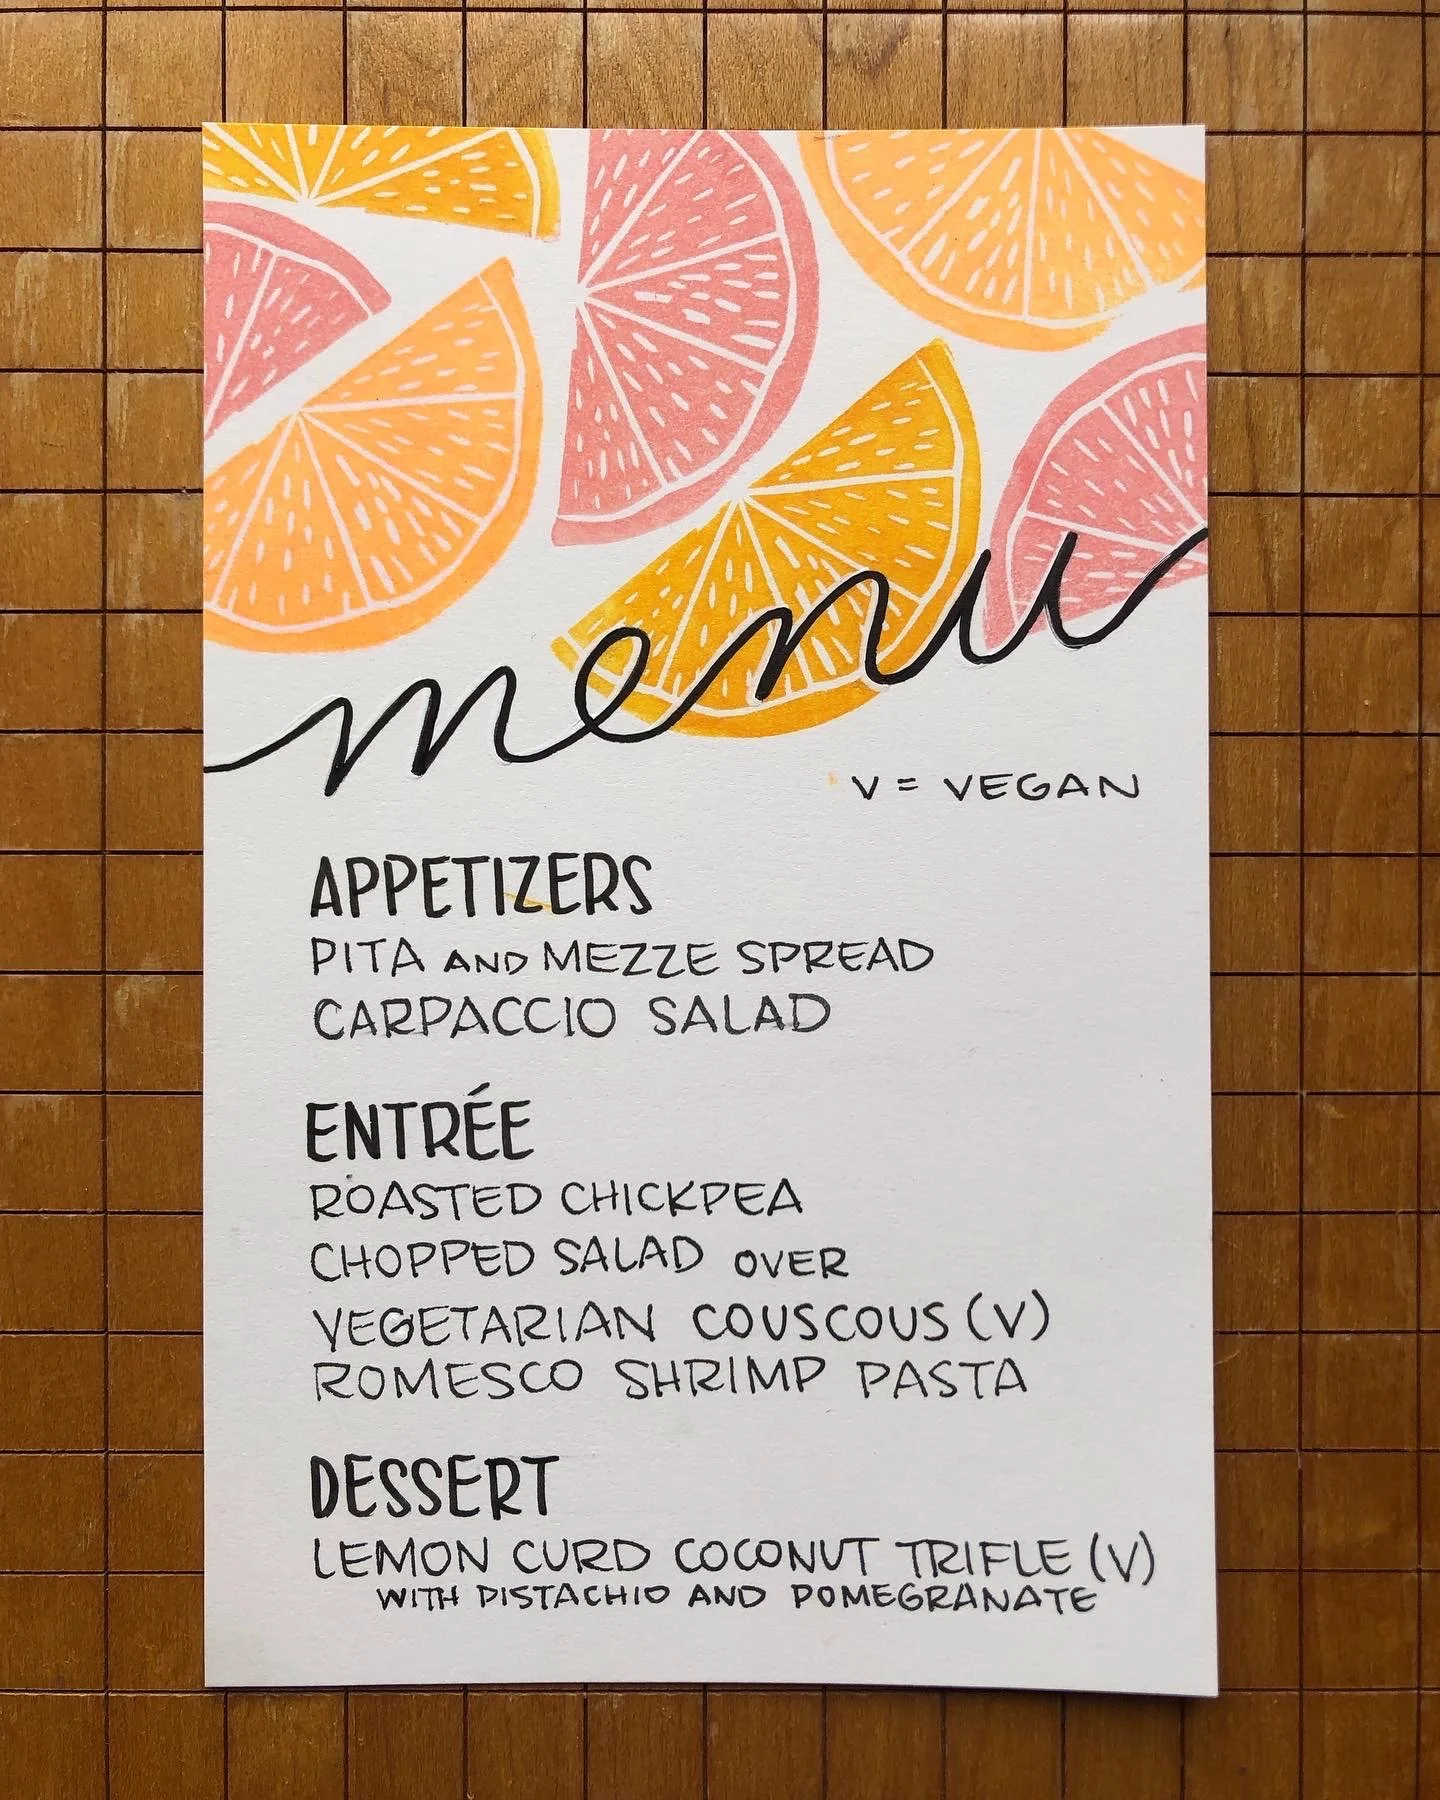 menu
V = VEGAN
APPETIZERS
PITA AND MEZZE SPREAD
CARPACCIO SALAD
ENTRÉE
ROASTED CHICKPEA
CHOPPED SALAD OVER
VEGETARIAN COUSCOUS (V)
ROMESCO SHRIMP PASTA
DESSERT
LEMON CURD COCONUT TRIFLE (V)
WITH PISTACHIO AND POMEGRANATE